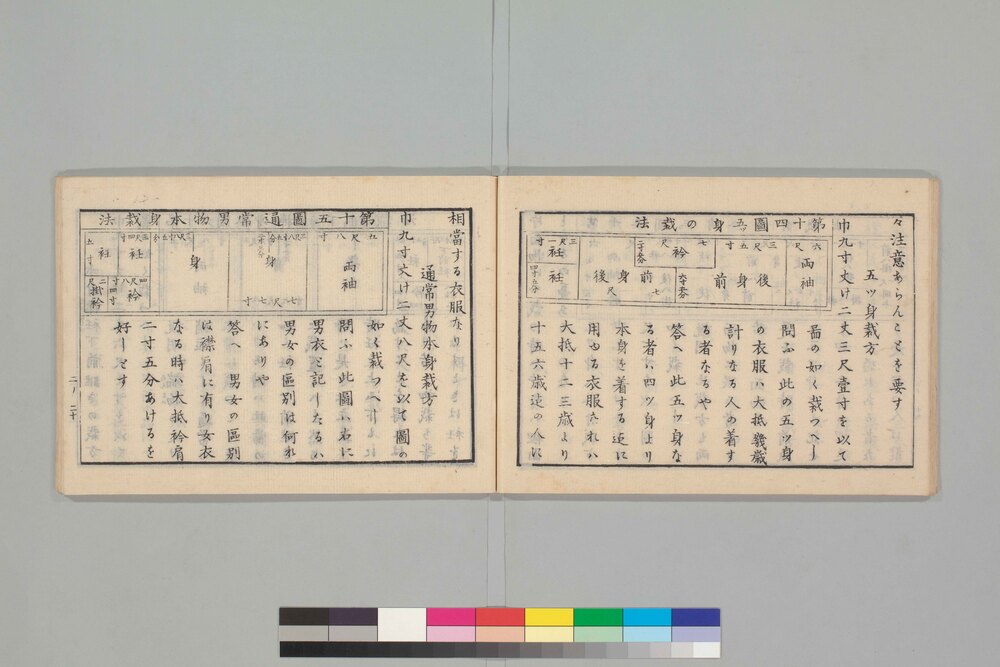 々注意あらんことを要す
五ッ身裁方
巾九寸丈け二丈三尺壹寸を以て
圖の如く裁つへし
問ふ此の五ッ身
の衣服ハ大抵幾歳
計りなる人の着す
る者なるや
答へ此五ッ身な
る者ハ四ツ身より
本身を着する迄に
用ゆる衣服なれハ
大抵十二三歳より
十五六歳迄の人に
第十四圖五ッ身の裁法
六尺 両袖
三尺五寸 後身前
七尺 衽
前身後
衽
三尺一寸 衽
相當する衣服なり
通常男物本身裁方
巾九寸丈け二丈八尺を以て圖の
如く裁つへし
問ふ此圖ハ右に
男衣と記したるハ
男女の區別は何れ
にありや
答へ男女の區別
は襟肩に有り女衣
なる時ハ大抵衿肩
二寸五分あけるを
好しとす
第十五圖通常男物本身裁法
五尺八寸 両袖
身
身
三尺四寸 衽
衽 五寸
四尺八寸 衿
二尺四寸 掛衿
二ノ二十